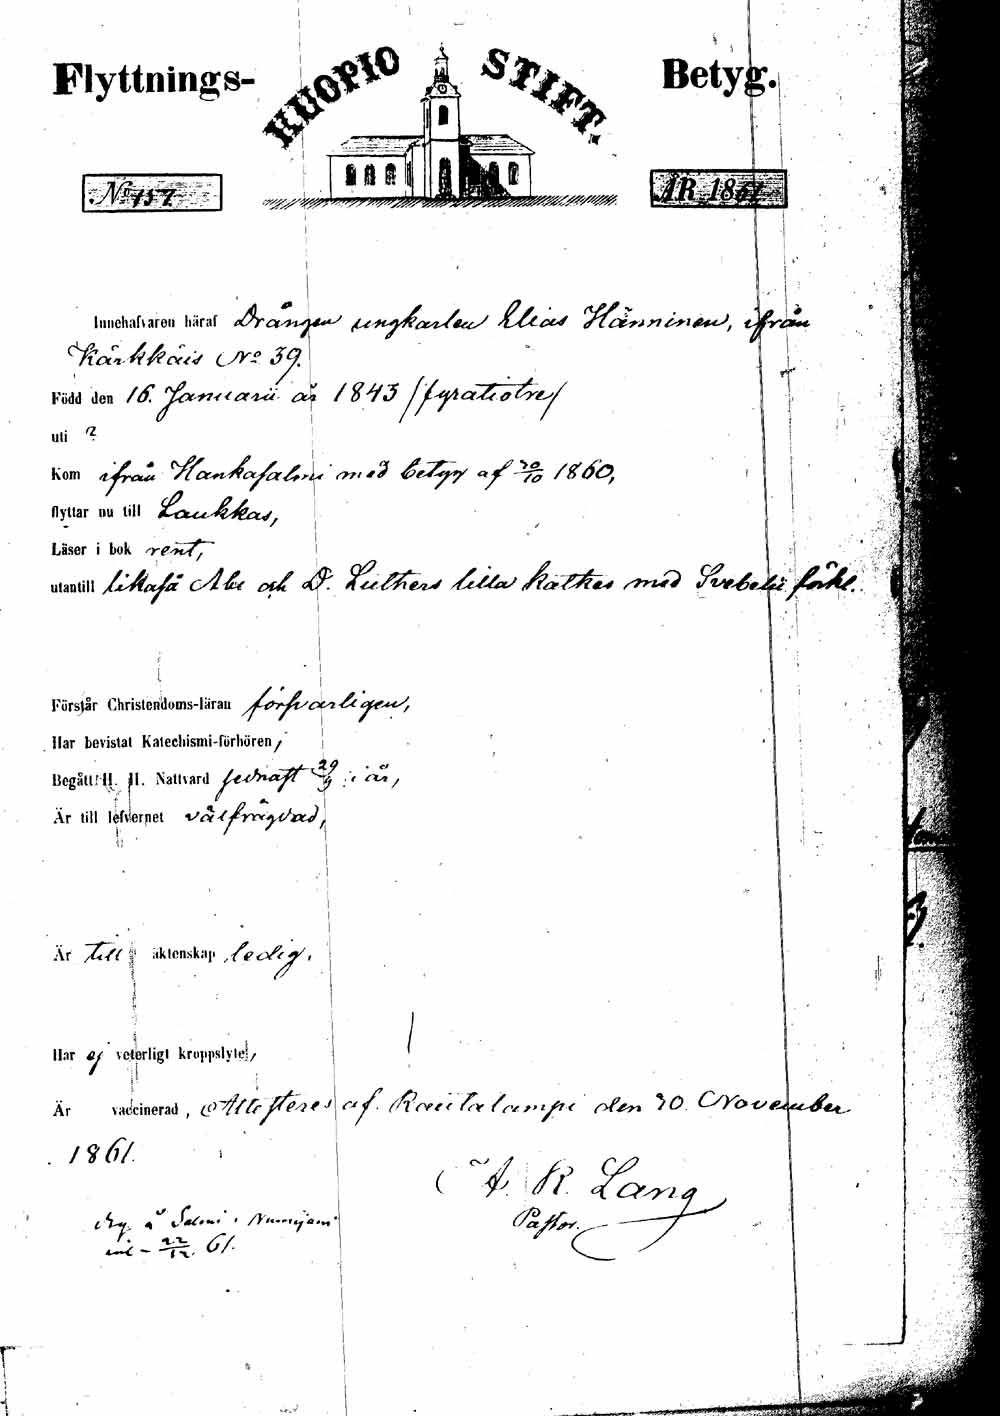 Flyttnings- KUOPIO STIFT. Betyg.
No 157 ÅR 1861
Innehafvaren häraf Drängen ungkarlen Elias Hänninen, ifrån
Kärkkäis No 39.
Född den 16. Januarii år 1843 /fyratiotre/
uti ?
Kom ifrån Hankasalmi med betyg af 30/10 1860,
flyttar nu till Laukkas,
Läser i bok rent,
utantill likaså Abc och D. Luthers lilla kathes med Svebelii förkl.
Förstår Christendoms-läran försvarligen,
Har bevistat Katechismi-förhören,
Begått H. H. Nattvard sednast 29/9 i år,
Är till lefvernet välfrägdad,
Är till äktenskap ledig.
Har ej veterligt kroppslyte,
Är vaccinerad, Attesteres af Rautalampi den 30 November
1861.
A. R. Lang
Pastor.
å Salmi i Nurmijärvi
22/12 61.